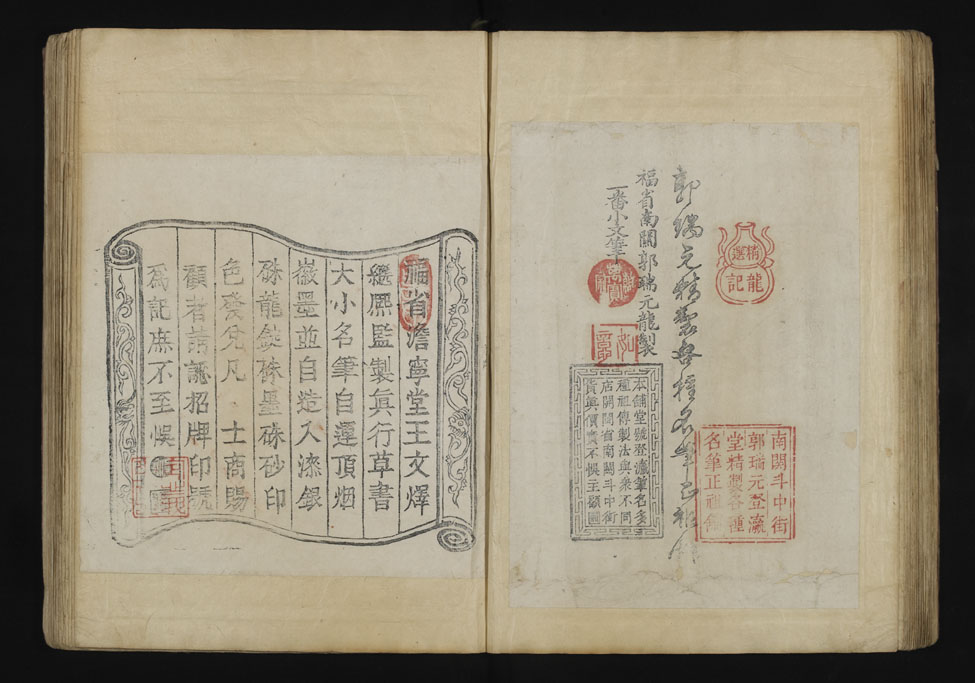 精選
龍記
郭瑞元精製各種名筆正祖
福省南關郭瑞元龍製
一番小文筆
如意
南關斗中街
郭瑞元登瀛
堂精製各種
名筆正祖
本舖堂號登瀛筆名多
種祖傳製法與眾不同
店開閩省南關斗中街
貨真價實不悞主顧
福省澹寧堂王文燡
繼熈監製眞行草書
大小名筆自運頂烟
徽墨並自造入漆銀
硃龍錠硃墨硃砂印
色發兌凡 士商賜
顧者請認招牌印號
爲記庶不至悞